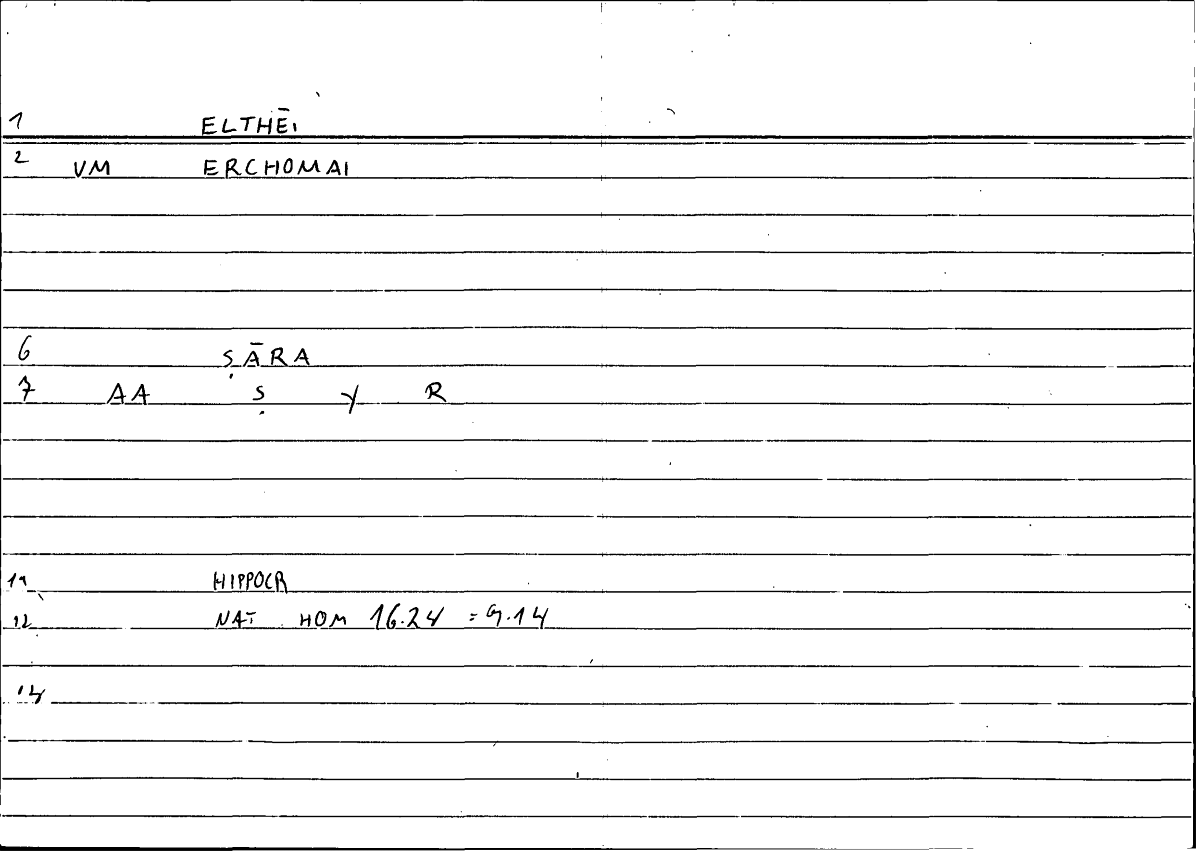 1 ELTHĒI
2 VM ERCHOMAI
6 ṢĀRA
7 AA Ṣ Y R
11 HIPPOCR
12 NAT HOM 16.24 = 9.14
14